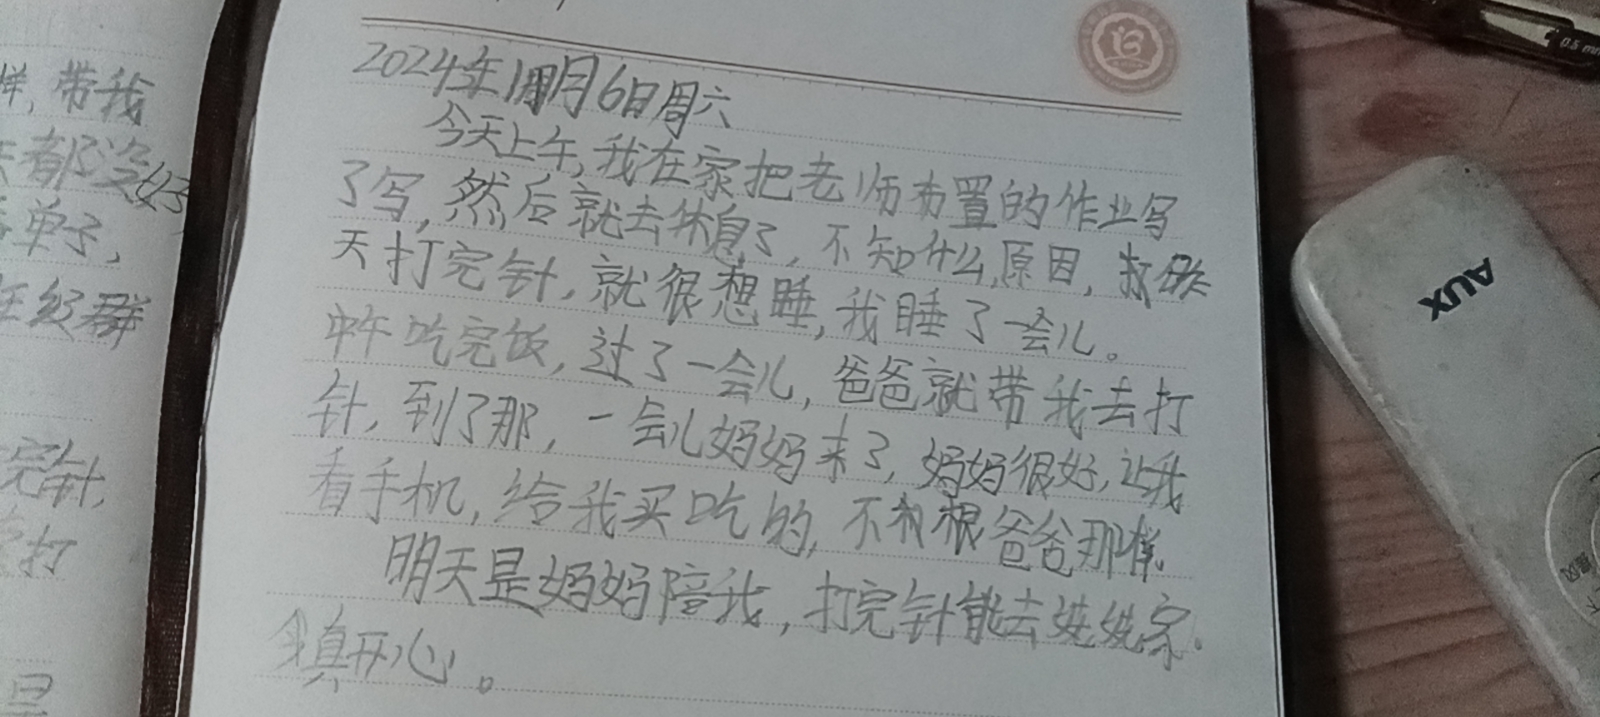 2024年1月6日周六
今天上午,我在家把老师布置的作业写
了写,然后就去休息了,不知什么原因,
天打完针,就很想睡,我睡了一会儿。
中午吃完饭,过了一会儿,爸爸就带我去打
针,到了那,一会儿妈妈来了,妈妈很好,让我
看手机,给我买吃的,不 根爸爸那样.
明天是妈妈陪我,打完针能去姥姥家.
真开心。
样,带我
都没好
单了,
级群
完针,
打
是
AUX
0.5 mm